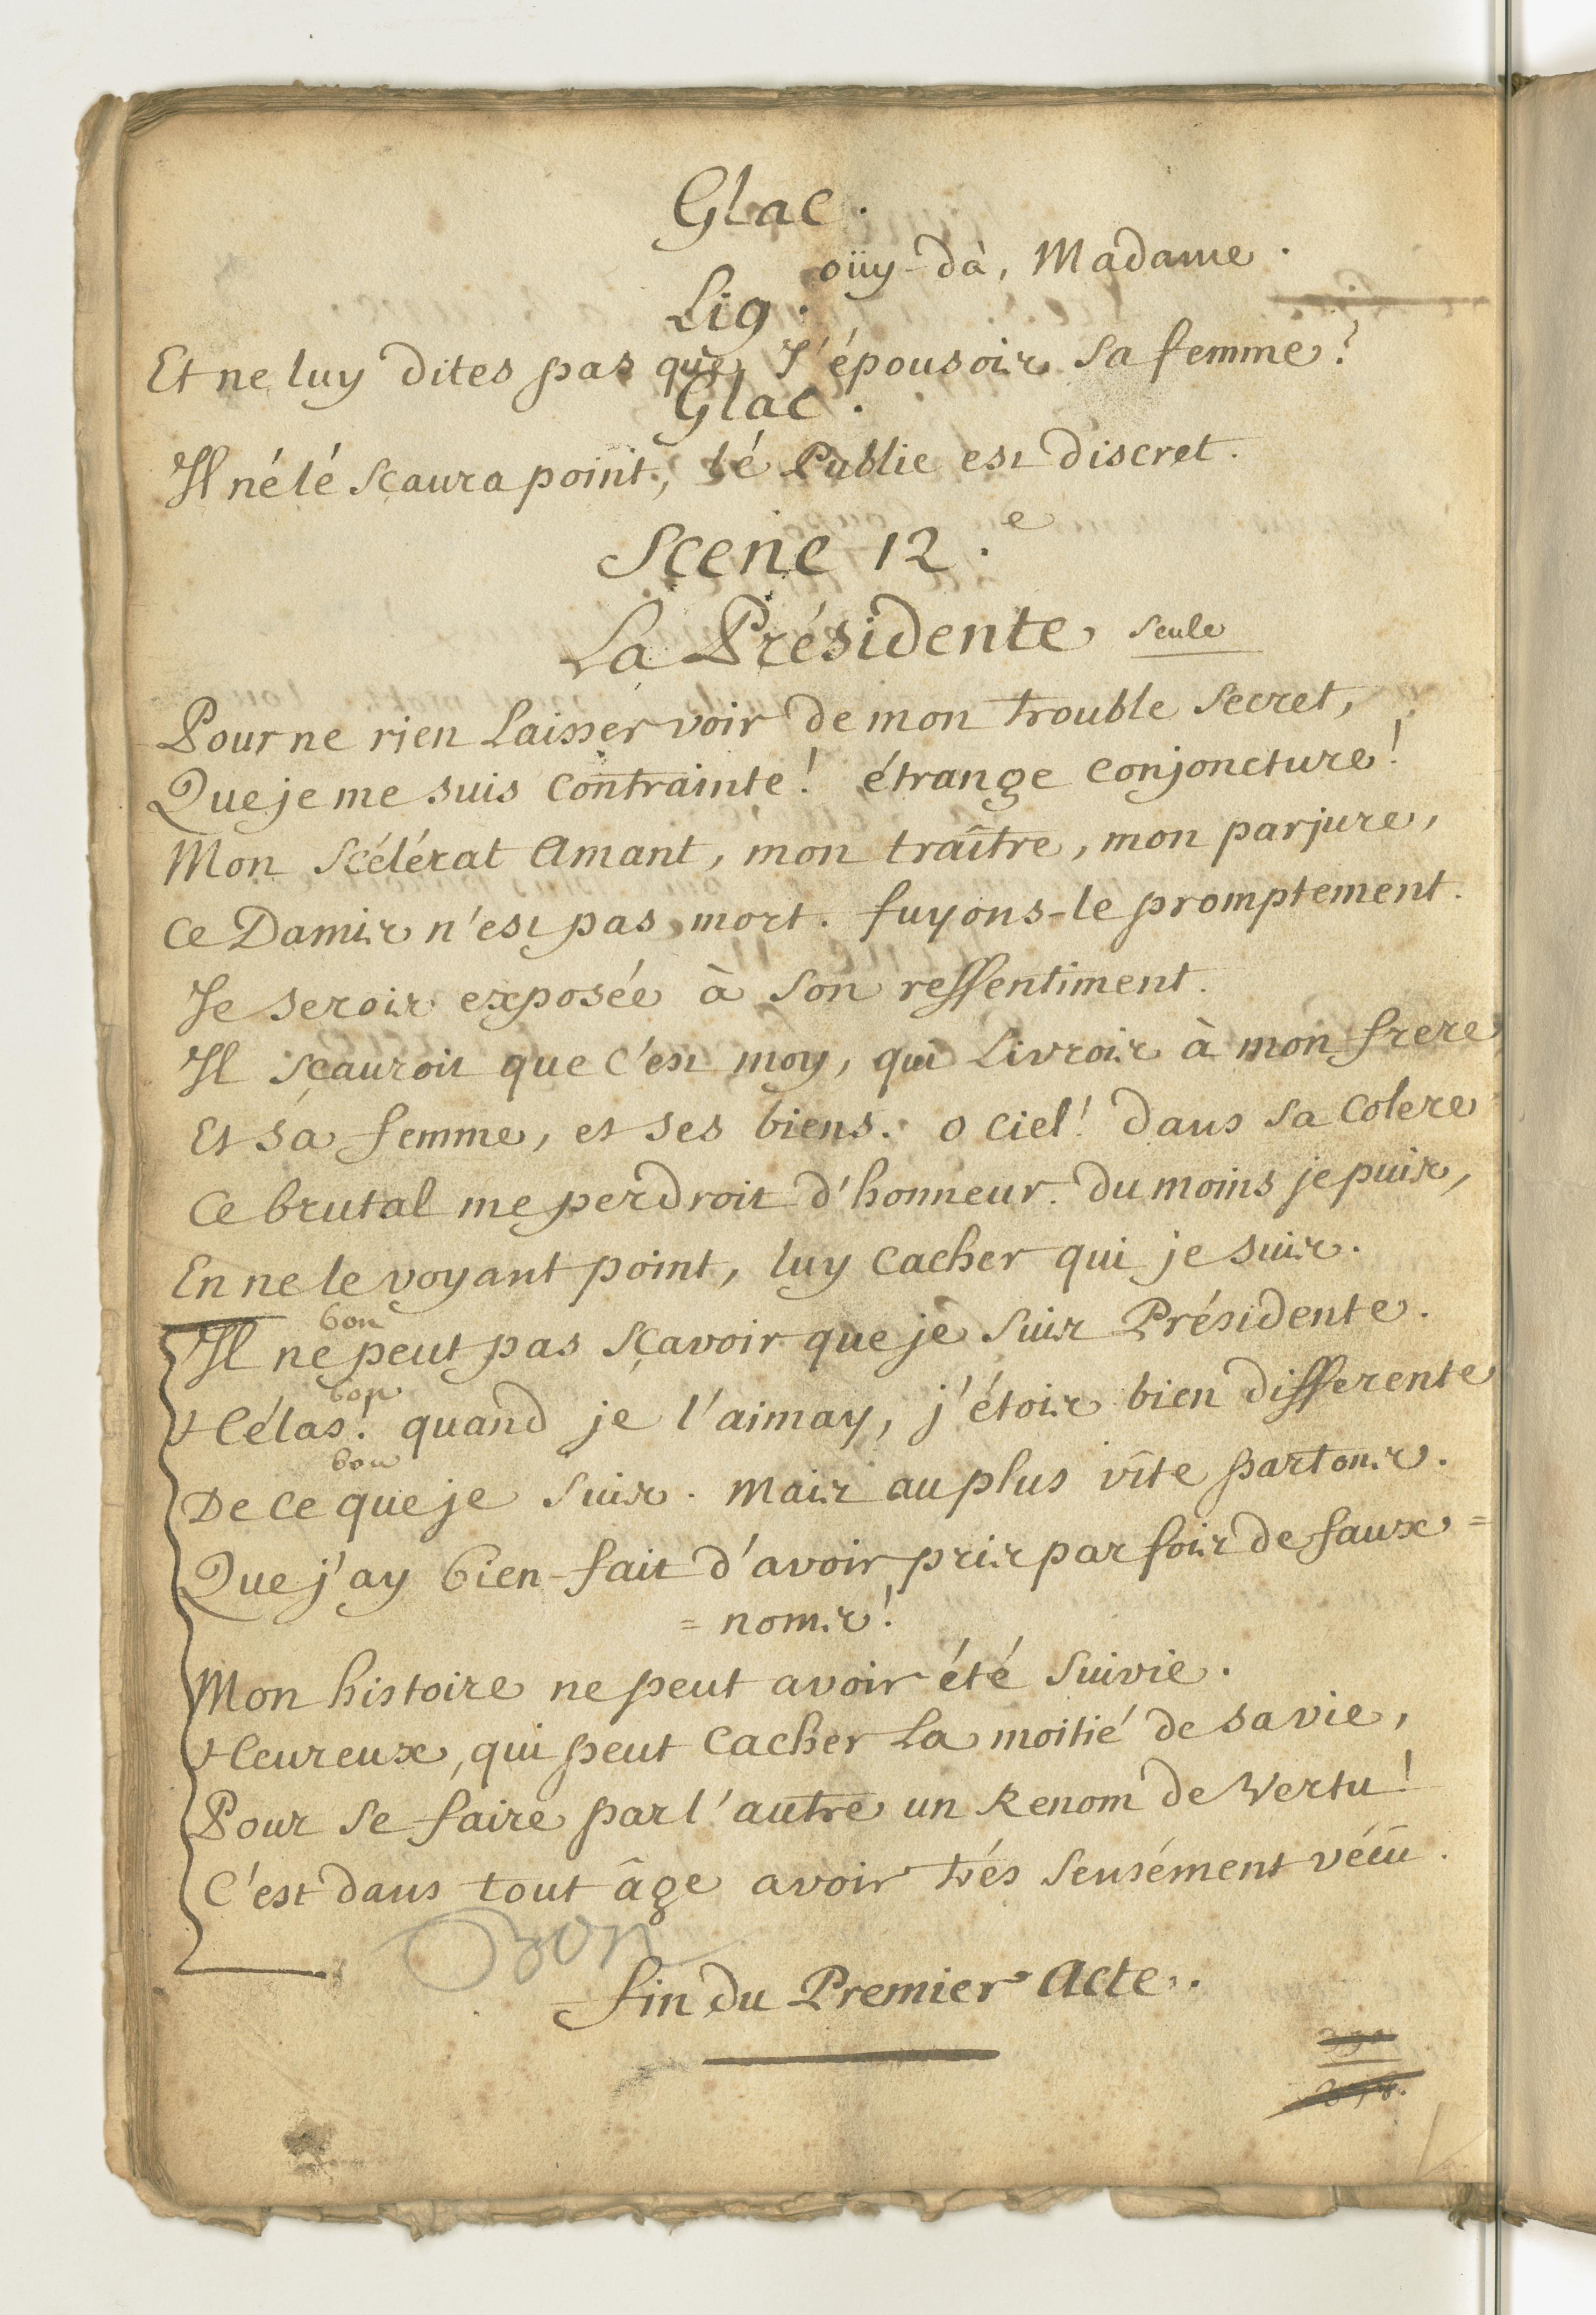 Glac.
oüy-dà, Madame.
Lig.
Et ne luy dites pas que J'épousois sa femme?
Glac.
Il né lé sçaura point, lé Public est discret.
Scene 12.e
La Présidente seule
Pour ne rien laisser voir de mon trouble secret,
Que je me suis contrainte! étrange conjoncture!
Mon scélérat Amant, mon traître, mon parjure,
Ce Damis n'est pas mort. fuyons-le promptement.
Je serois exposée à son ressentiment.
Il sçauroit que c'est moy, qui livrois à mon frere
Et sa femme, et ses biens. o Ciel! dans sa colere
Ce brutal me perdroit d'honneur. du moins je puis,
En ne le voyant point, luy cacher qui je suis.
bon
Il ne peut pas sçavoir que je suis Présidente.
bon
Hélas! quand je l'aimay, j'étois bien differente
bon
De ce que je suis. Mais au plus vîte partons.
Que j'ay bien-fait d'avoir pris par fois de faux =
= noms!
Mon histoire ne peut avoir été suivie.
Heureux, qui peut cacher la moitié de sa vie,
Pour se faire par l'autre un Renom de Vertu!
C'est dans tout âge avoir trés sensément vécû.
Bon
fin du Premier Acte.